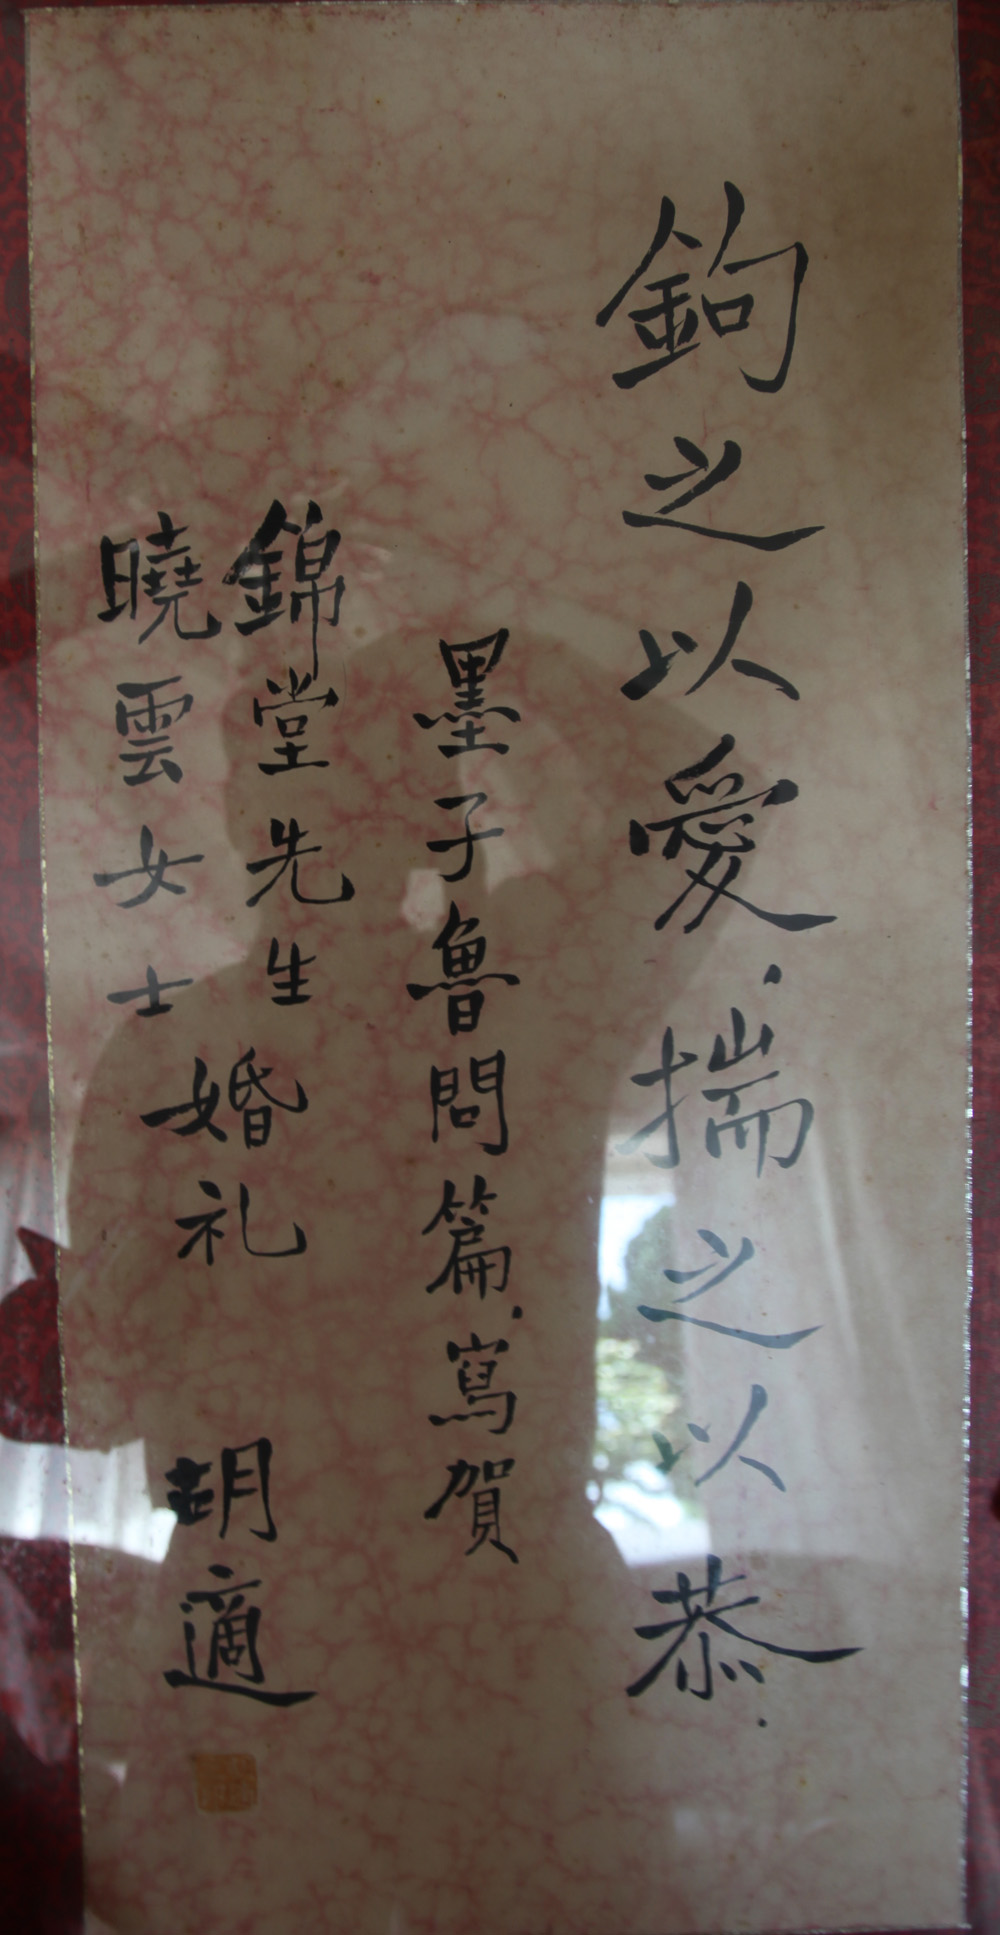 鉤之以愛．揣之以恭．
墨子魯問篇．寫賀
錦堂先生
曉雲女士
婚礼
胡適